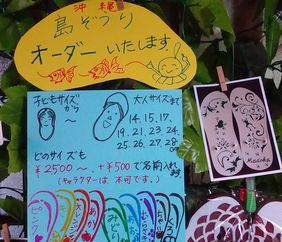 沖縄
島ぞうり
オーダー いたします
子どもサイズから
大人サイズまで
14.15.17.
19.21.23.24.
25.26.27.28cm
どのサイズも
¥2500〜. +¥500で名前入れます
(キャラクターは 不可です。)
ピンク
みどり